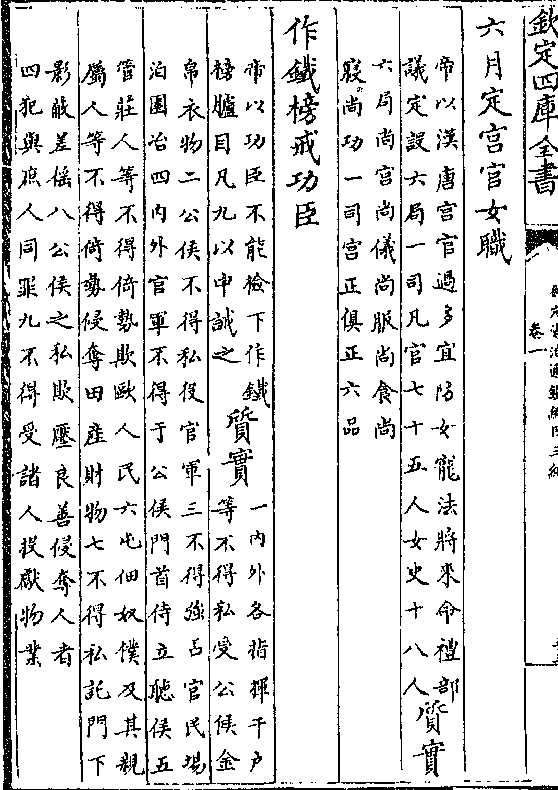 欽定四庫全書
卷一
六月定宮官女職
帝以漢唐宮官過多宜防女寵法將來命禮部
議定設六局一司凡官七十五人女史十八人質實
六局尚宮尚儀尚服尚食尚
寢尚功一司宮正俱正六品
作鐵榜戒功臣
帝以功臣不能檢下作鐵
榜臚目凡九以申誡之質實
一內外各指揮千戶
等不得私受公侯金
帛衣物二公侯不得私役官軍三不得強占官民場
泊園冶四內外官軍不得于公侯門首侍立聽侯五
管莊人等不得倚勢欺歐人民六屯佃奴僕及其親
屬人等不得倚勢侵奪田産財物七不得私託門下
影蔽差徭八公侯之私欺壓良善侵奪人者
四犯與庶人同罪九不得受諸人投獻物業